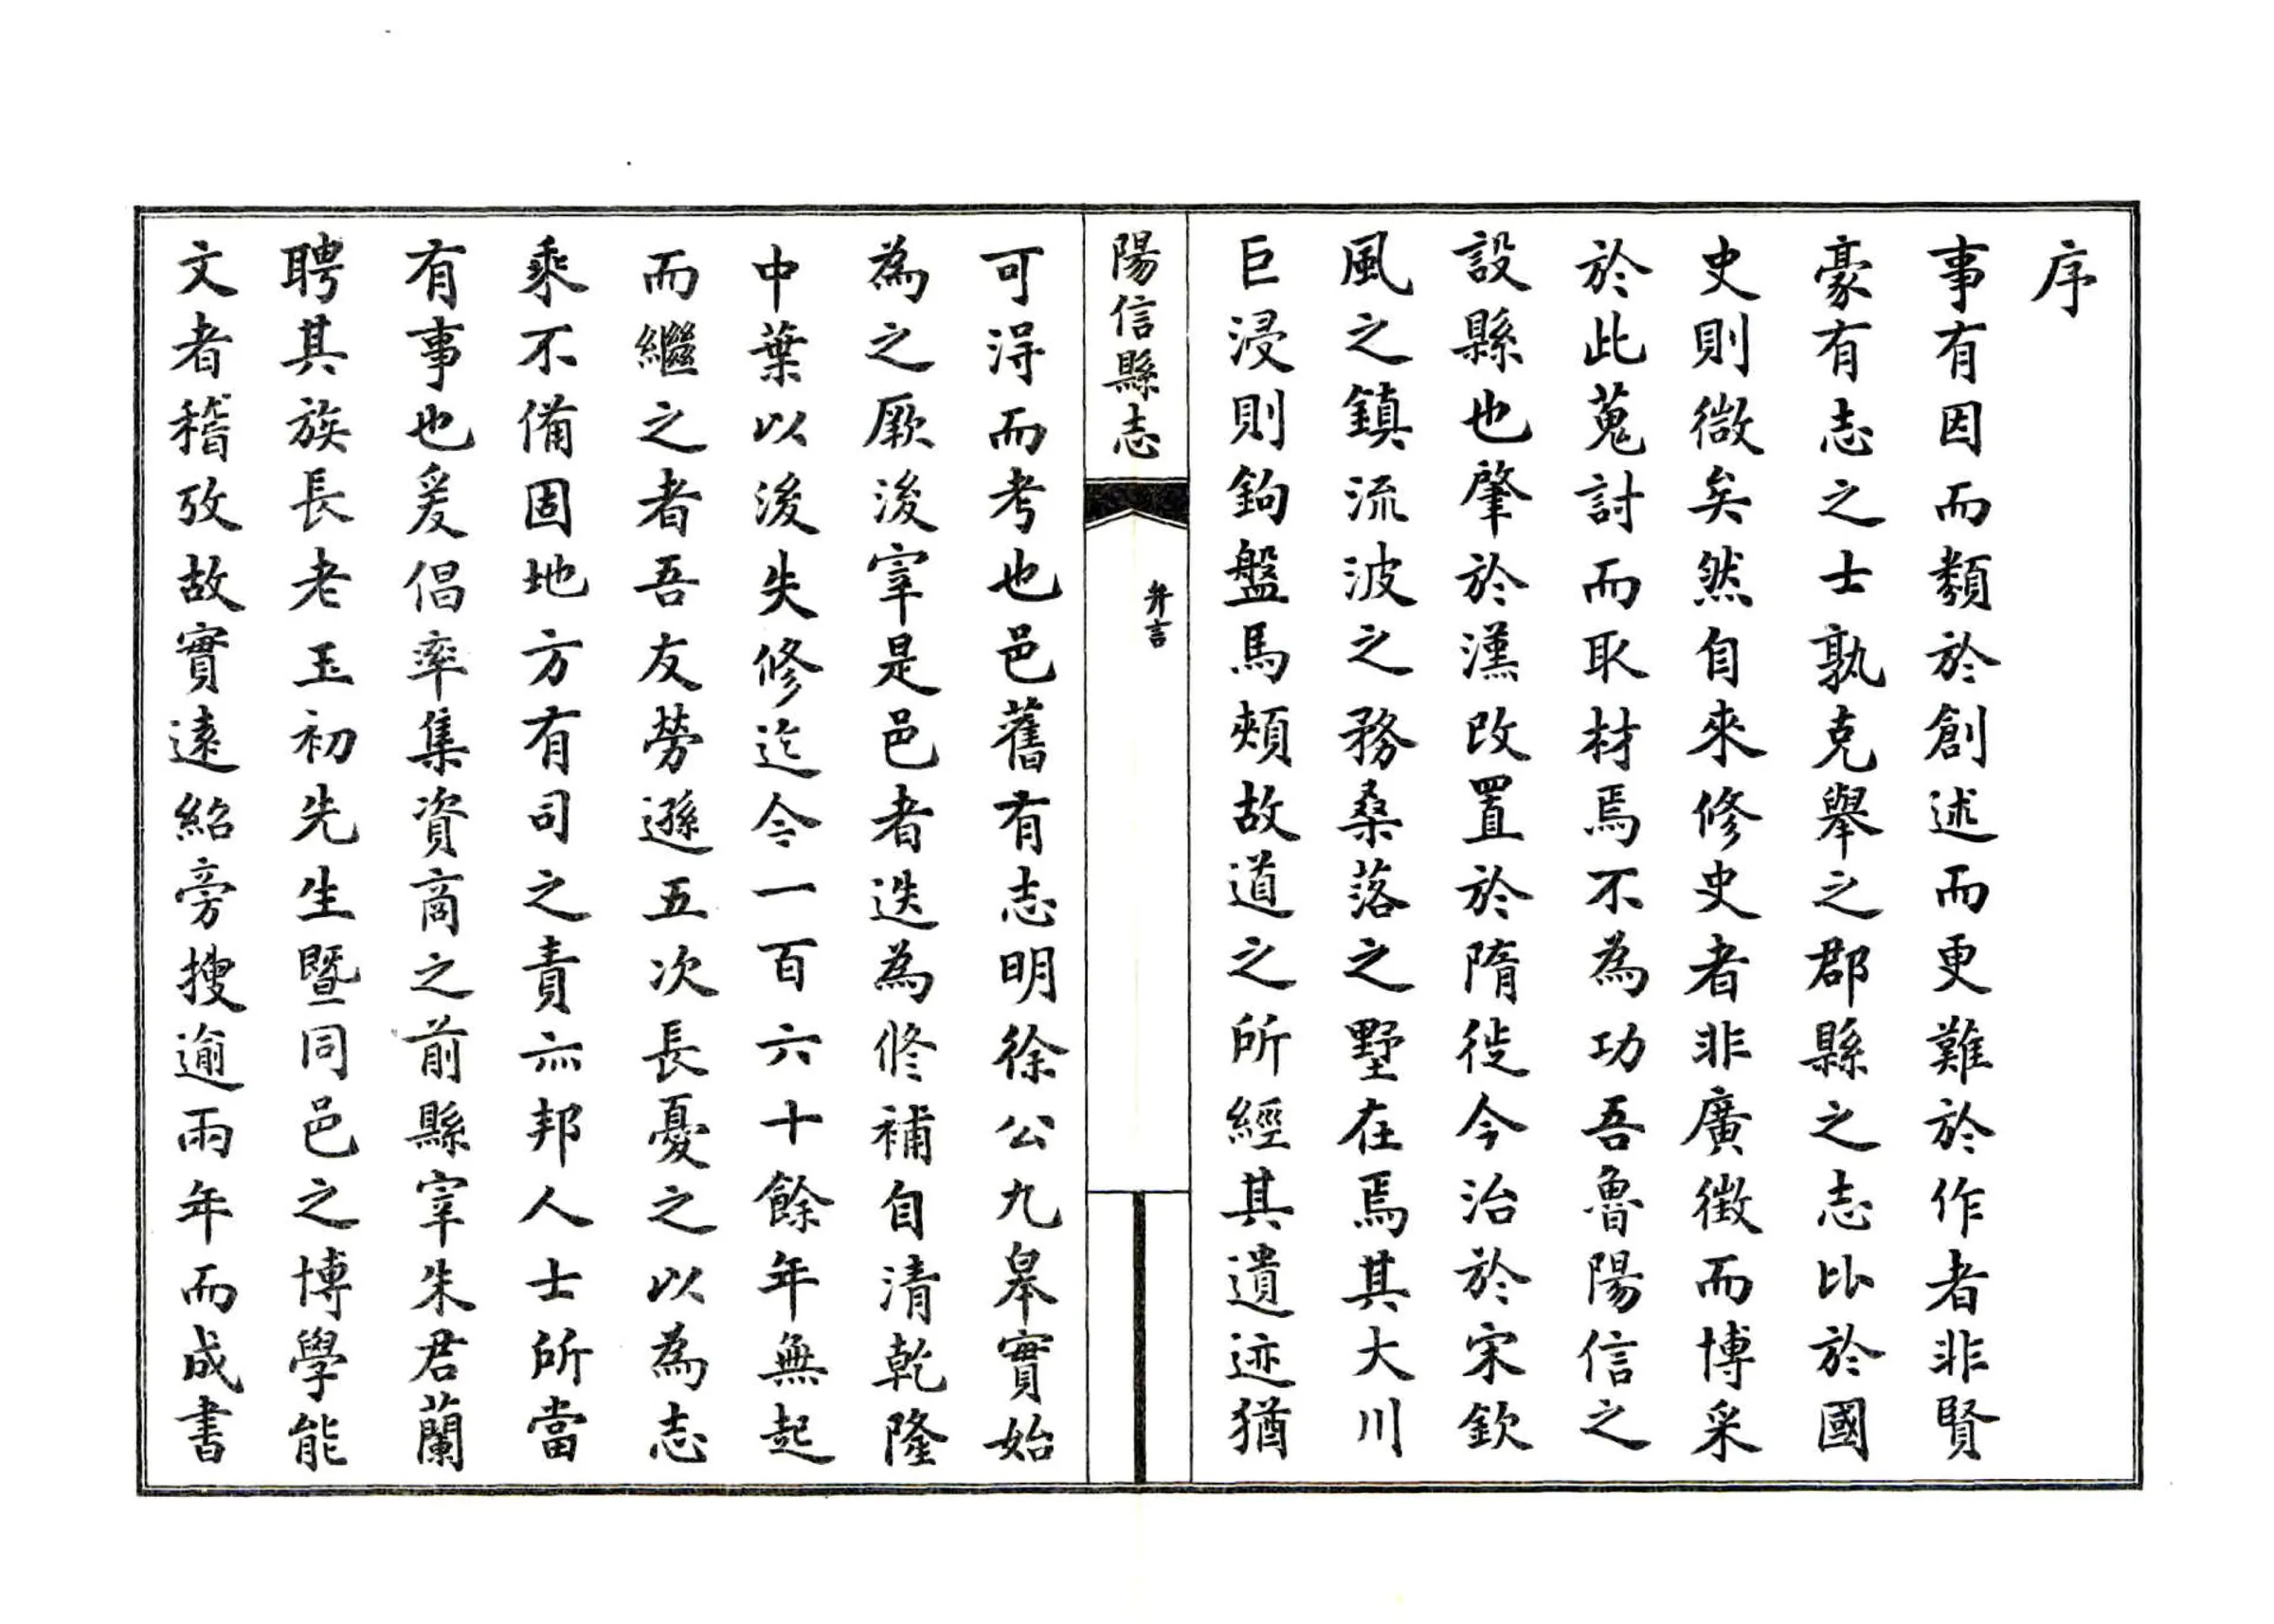 序
事有因而類於創述而更難於作者非賢
豪有志之士孰克舉之郡縣之志比於國
史則微矣然自來修史者非廣徵而博采
於此蒐討而取材焉不為功吾魯陽信之
設縣也肇於漢改置於隋徙今治於宋欽
風之鎮流波之務桑落之墅在焉其大川
巨浸則鉤盤馬頰故道之所經其遺迹猶
陽信縣志
弁言
可得而考也邑舊有志明徐公九皋實始
為之厥後宰是邑者迭為修補自清乾隆
中葉以後失修迄今一百六十餘年無起
而繼之者吾友勞遜五次長憂之以為志
乘不備固地方有司之責亦邦人士所當
有事也爰倡率集資商之前縣宰朱君蘭
聘其族長老玉初先生暨同邑之博學能
文者稽攷故實遠紹旁搜逾兩年而成書